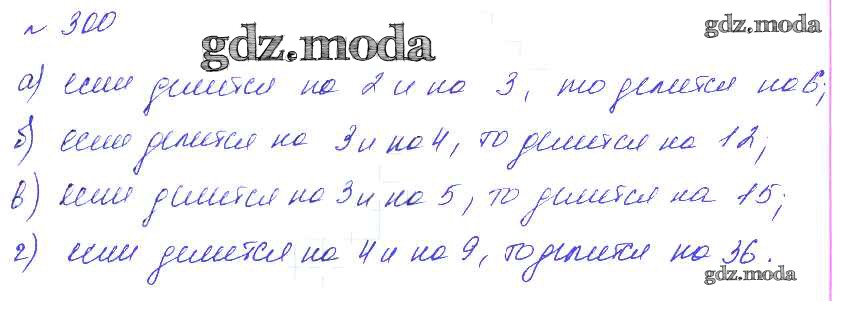 № 300
gdz.moda
gdz.moda
а) если делится на 2 и на 3, то делится на 6;
б) если делится на 3 и на 4, то делится на 12;
в) если делится на 3 и на 5, то делится на 15;
г) если делится на 4 и на 9, то делится на 36.
gdz.moda